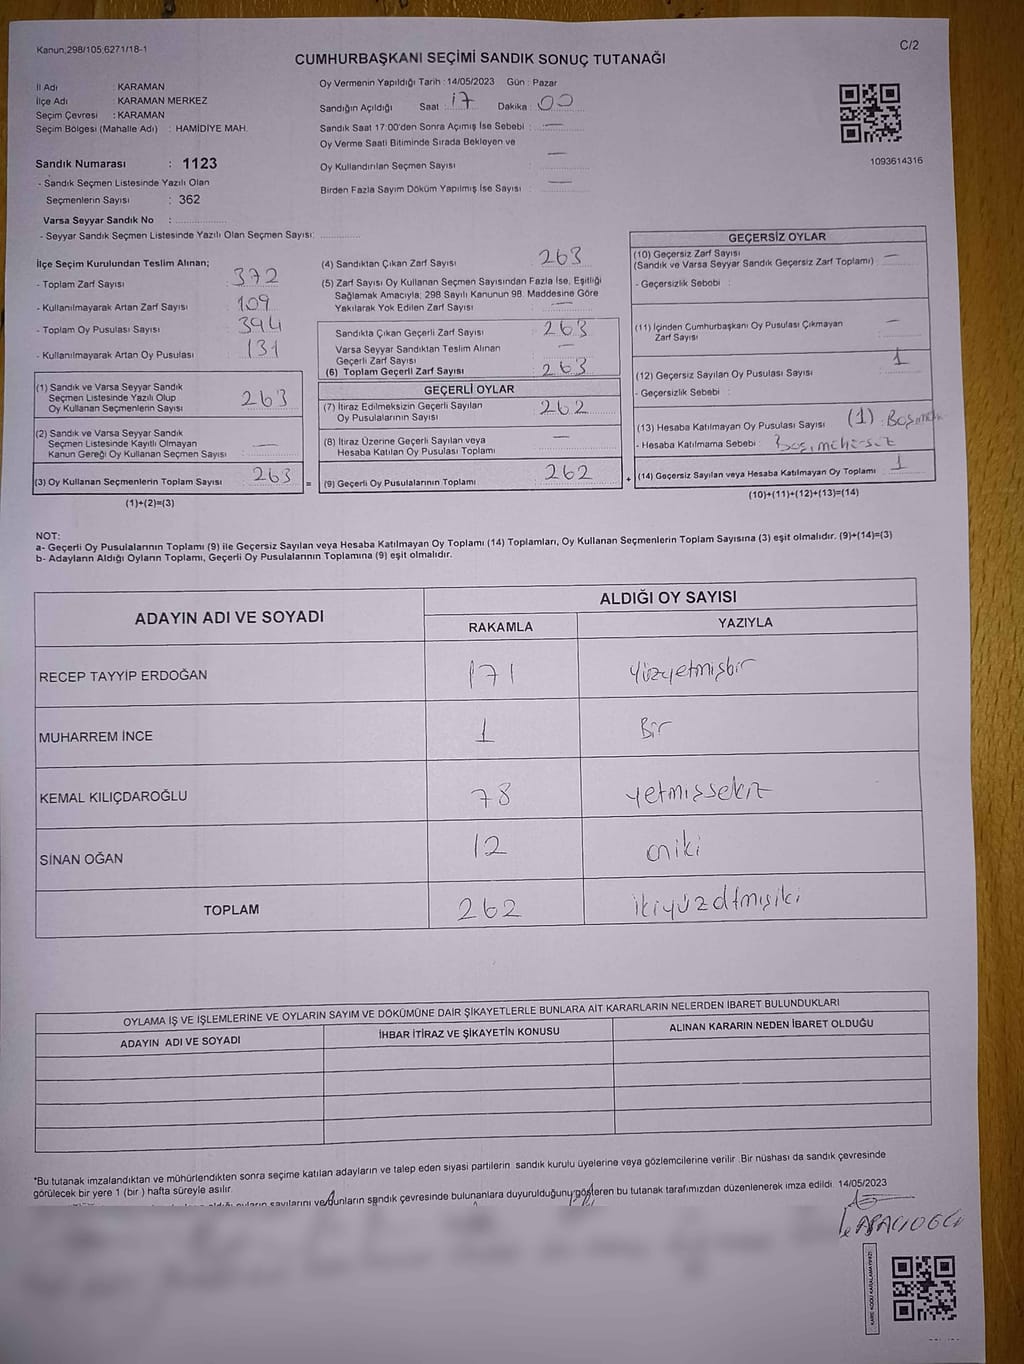 Kanun,298/105,6271/18-1
C/2
CUMHURBAŞKANI SEÇİMİ SANDIK SONUÇ TUTANAĞI
İl Adı : KARAMAN
İlçe Adı : KARAMAN MERKEZ
Seçim Çevresi : KARAMAN
Seçim Bölgesi (Mahalle Adı) : HAMİDİYE MAH.
Sandık Numarası : 1123
- Sandık Seçmen Listesinde Yazılı Olan
Seçmenlerin Sayısı : 362
Varsa Seyyar Sandık No :
- Seyyar Sandık Seçmen Listesinde Yazılı Olan Seçmen Sayısı:
Oy Vermenin Yapıldığı Tarih : 14/05/2023 Gün : Pazar
Sandığın Açıldığı Saat : 17 Dakika : 00
Sandık Saat 17:00'den Sonra Açımış İse Sebebi : —
Oy Verme Saati Bitiminde Sırada Bekleyen ve
Oy Kullandırılan Seçmen Sayısı —
Birden Fazla Sayım Döküm Yapılmış İse Sayısı : —
1093614316
İlçe Seçim Kurulundan Teslim Alınan;
- Toplam Zarf Sayısı : 372
- Kullanılmayarak Artan Zarf Sayısı : 109
- Toplam Oy Pusulası Sayısı : 394
- Kullanılmayarak Artan Oy Pusulası : 131
(1) Sandık ve Varsa Seyyar Sandık
Seçmen Listesinde Yazılı Olup
Oy Kullanan Seçmenlerin Sayısı : 263
(2) Sandık ve Varsa Seyyar Sandık
Seçmen Listesinde Kayıtlı Olmayan
Kanun Gereği Oy Kullanan Seçmen Sayısı : —
(3) Oy Kullanan Seçmenlerin Toplam Sayısı : 263
(1)+(2)=(3)
=
(4) Sandıktan Çıkan Zarf Sayısı : 263
(5) Zarf Sayısı Oy Kullanan Seçmen Sayısından Fazla İse, Eşitliği
Sağlamak Amacıyla; 298 Sayılı Kanunun 98. Maddesine Göre
Yakılarak Yok Edilen Zarf Sayısı : —
Sandıkta Çıkan Geçerli Zarf Sayısı : 263
Varsa Seyyar Sandıktan Teslim Alınan
Geçerli Zarf Sayısı : —
(6) Toplam Geçerli Zarf Sayısı : 263
GEÇERLİ OYLAR
(7) İtiraz Edilmeksizin Geçerli Sayılan
Oy Pusulalarının Sayısı : 262
(8) İtiraz Üzerine Geçerli Sayılan veya
Hesaba Katılan Oy Pusulası Toplamı : —
(9) Geçerli Oy Pusulalarının Toplamı : 262
+
GEÇERSİZ OYLAR
(10) Geçersiz Zarf Sayısı
(Sandık ve Varsa Seyyar Sandık Geçersiz Zarf Toplamı) : —
- Geçersizlik Sebobi :
(11) İçinden Cumhurbaşkanı Oy Pusulası Çıkmayan
Zarf Sayısı : —
(12) Geçersiz Sayılan Oy Pusulası Sayısı : 1
- Geçersizlik Sebebi :
(13) Hesaba Katılmayan Oy Pusulası Sayısı : (1)
- Hesaba Katılmama Sebebi :
(14) Geçersiz Sayılan veya Hesaba Katılmayan Oy Toplamı : 1
(10)+(11)+(12)+(13)=(14)
NOT:
a- Geçerli Oy Pusulalarının Toplamı (9) ile Geçersiz Sayılan veya Hesaba Katılmayan Oy Toplamı (14) Toplamları, Oy Kullanan Seçmenlerin Toplam Sayısına (3) eşit olmalıdır. (9)+(14)=(3)
b- Adayların Aldığı Oyların Toplamı, Geçerli Oy Pusulalarının Toplamına (9) eşit olmalıdır.
ADAYIN ADI VE SOYADI
ALDIĞI OY SAYISI
RAKAMLA YAZIYLA
RECEP TAYYİP ERDOĞAN 171 yüzyetmişbir
MUHARREM İNCE 1 Bir
KEMAL KILIÇDAROĞLU 78 yetmişsekiz
SİNAN OĞAN 12 oniki
TOPLAM 262 ikiyüzatmışiki
OYLAMA İŞ VE İŞLEMLERİNE VE OYLARIN SAYIM VE DÖKÜMÜNE DAİR ŞİKAYETLERLE BUNLARA AİT KARARLARIN NELERDEN İBARET BULUNDUKLARI
ADAYIN ADI VE SOYADI İHBAR İTİRAZ VE ŞİKAYETİN KONUSU ALINAN KARARIN NEDEN İBARET OLDUĞU
*Bu tutanak imzalandıktan ve mühürlendikten sonra seçime katılan adayların ve talep eden siyasi partilerin sandık kurulu üyelerine veya gözlemcilerine verilir. Bir nüshası da sandık çevresinde
görülecek bir yere 1 (bir ) hafta süreyle asılır.
sayılarını ve bunların sandık çevresinde bulunanlara duyurulduğunu gösteren bu tutanak tarafımızdan düzenlenerek imza edildi. 14/05/2023
KARE KODU KARALAMAYINIZ!